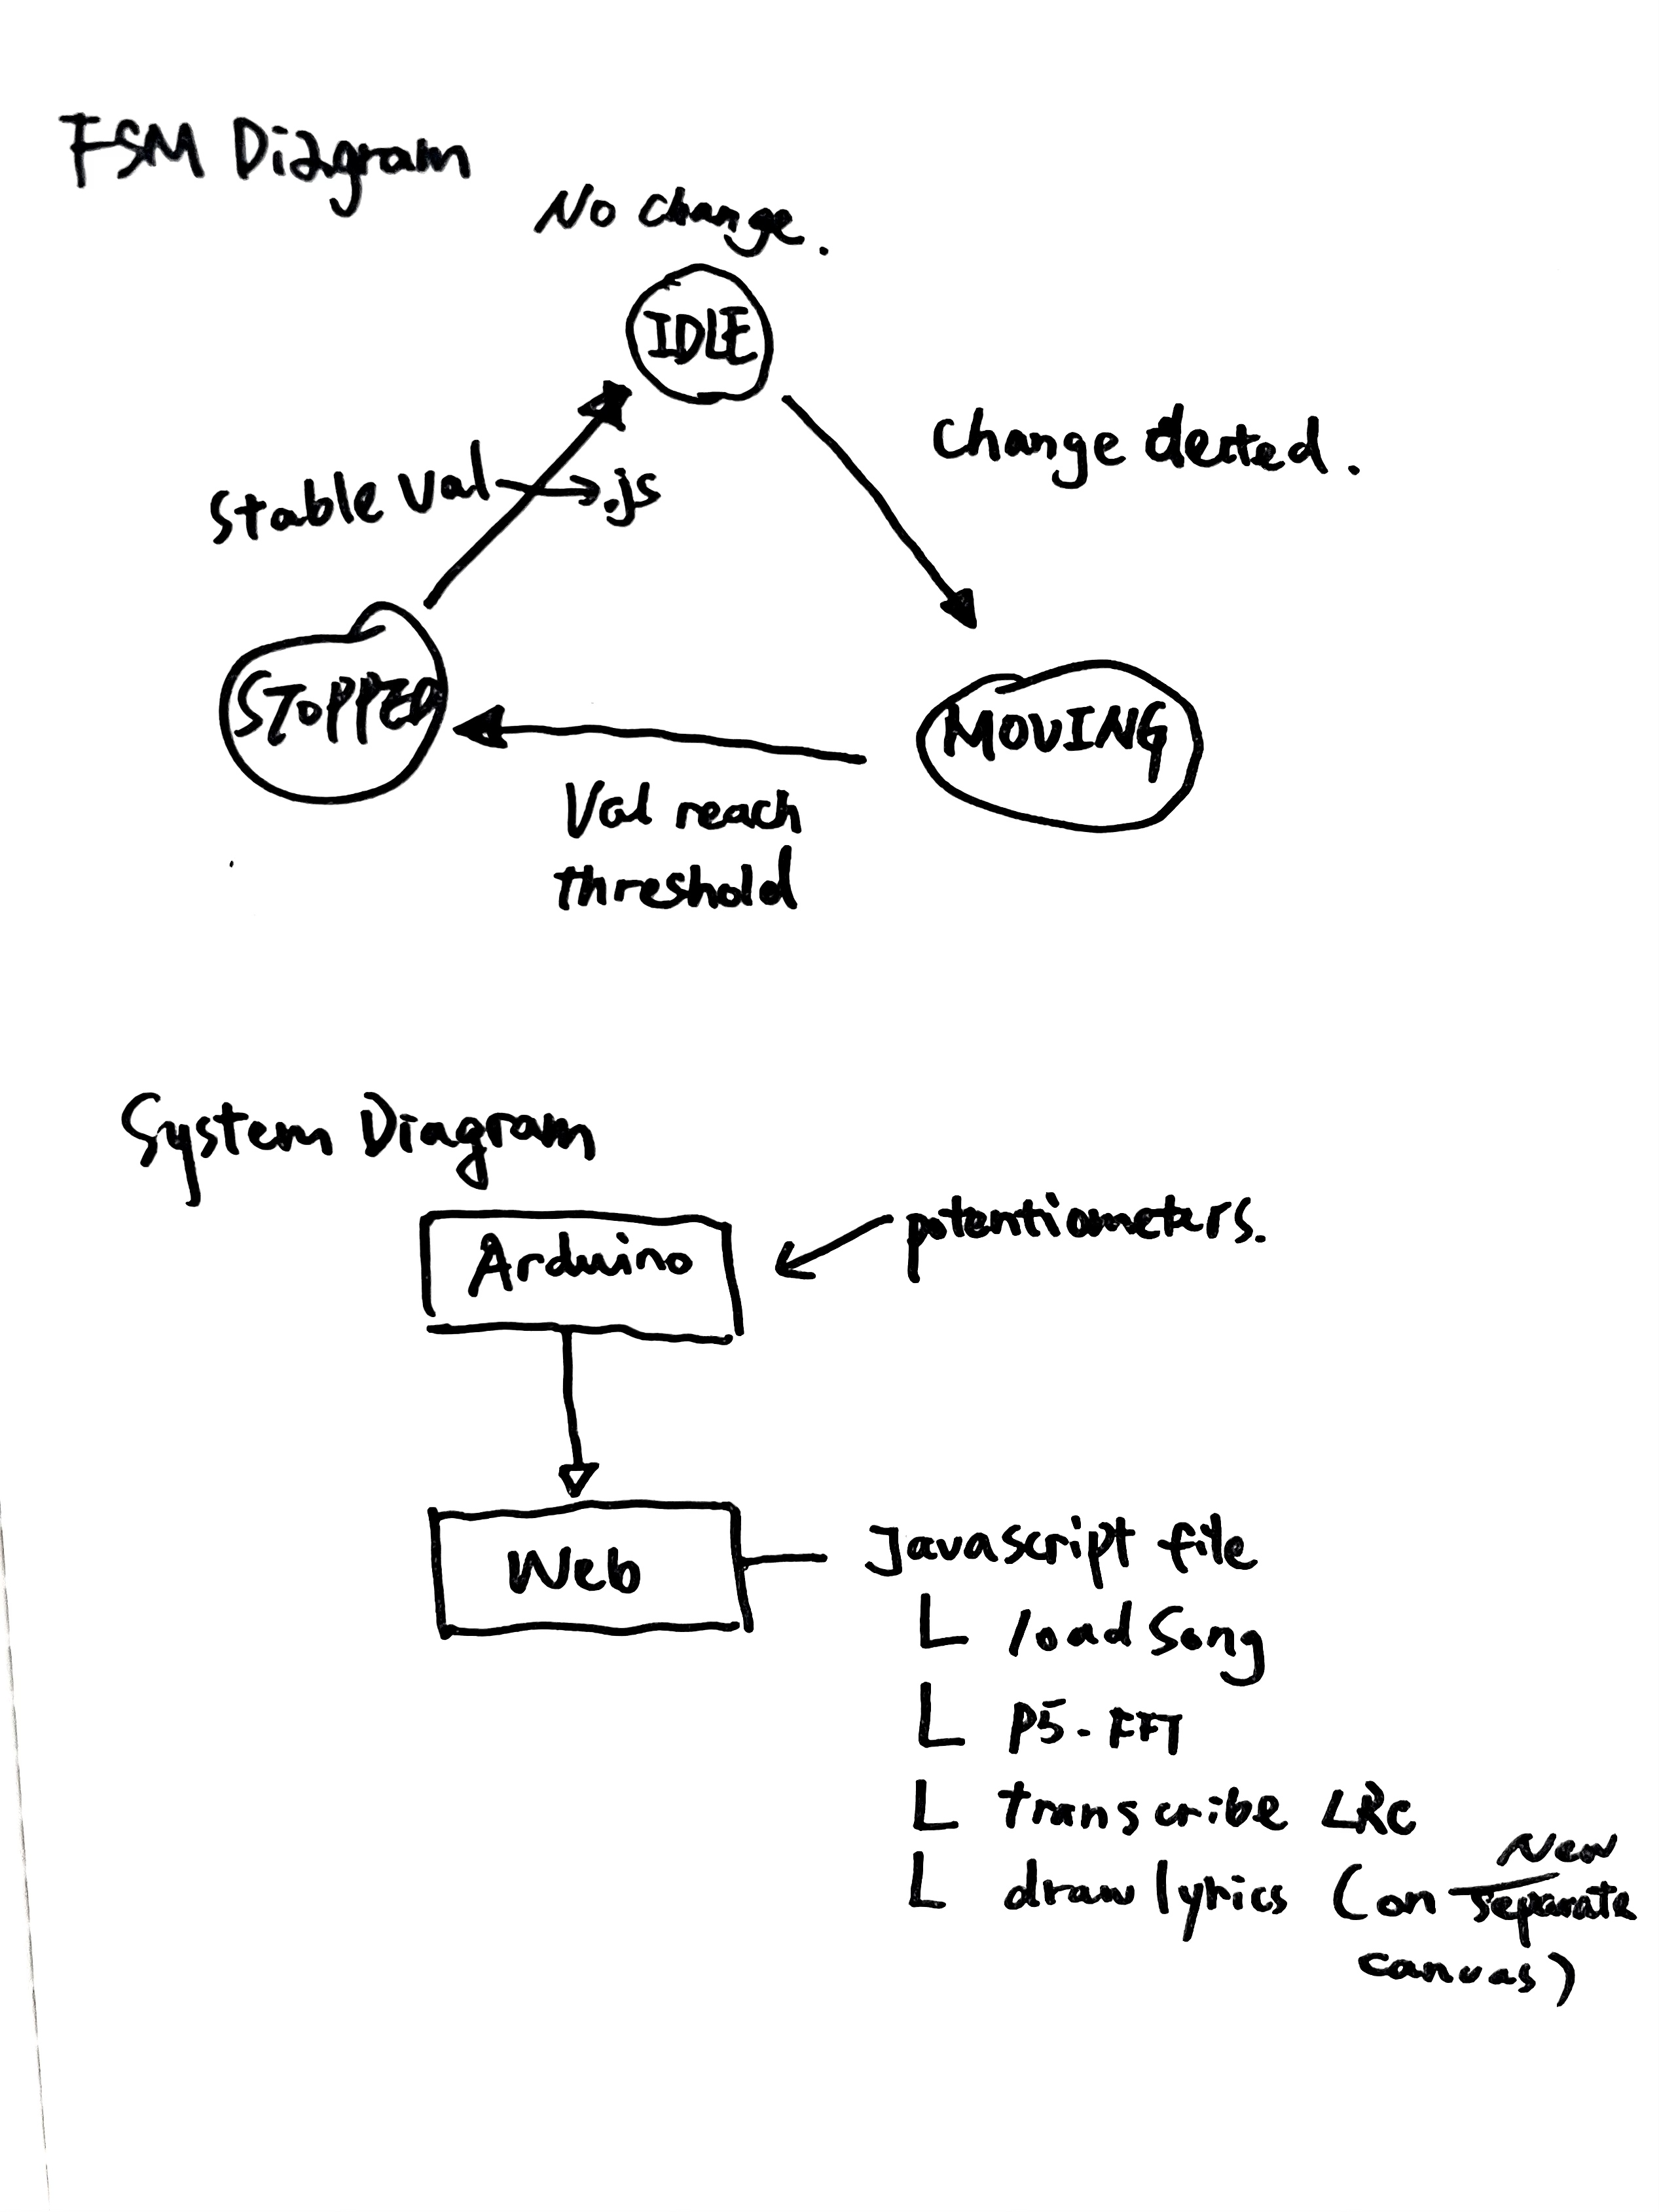 FSM Diagram
No change.
IDLE
Change deted.
Stable Val → .js
STOPPED
MOVING
Val reach
threshold
System Diagram
Arduino
potentiometers.
Web
Javascript file
L load Song
L P5-FFT
L transcribe LRC
New
L draw lyrics (on separate
canvas)